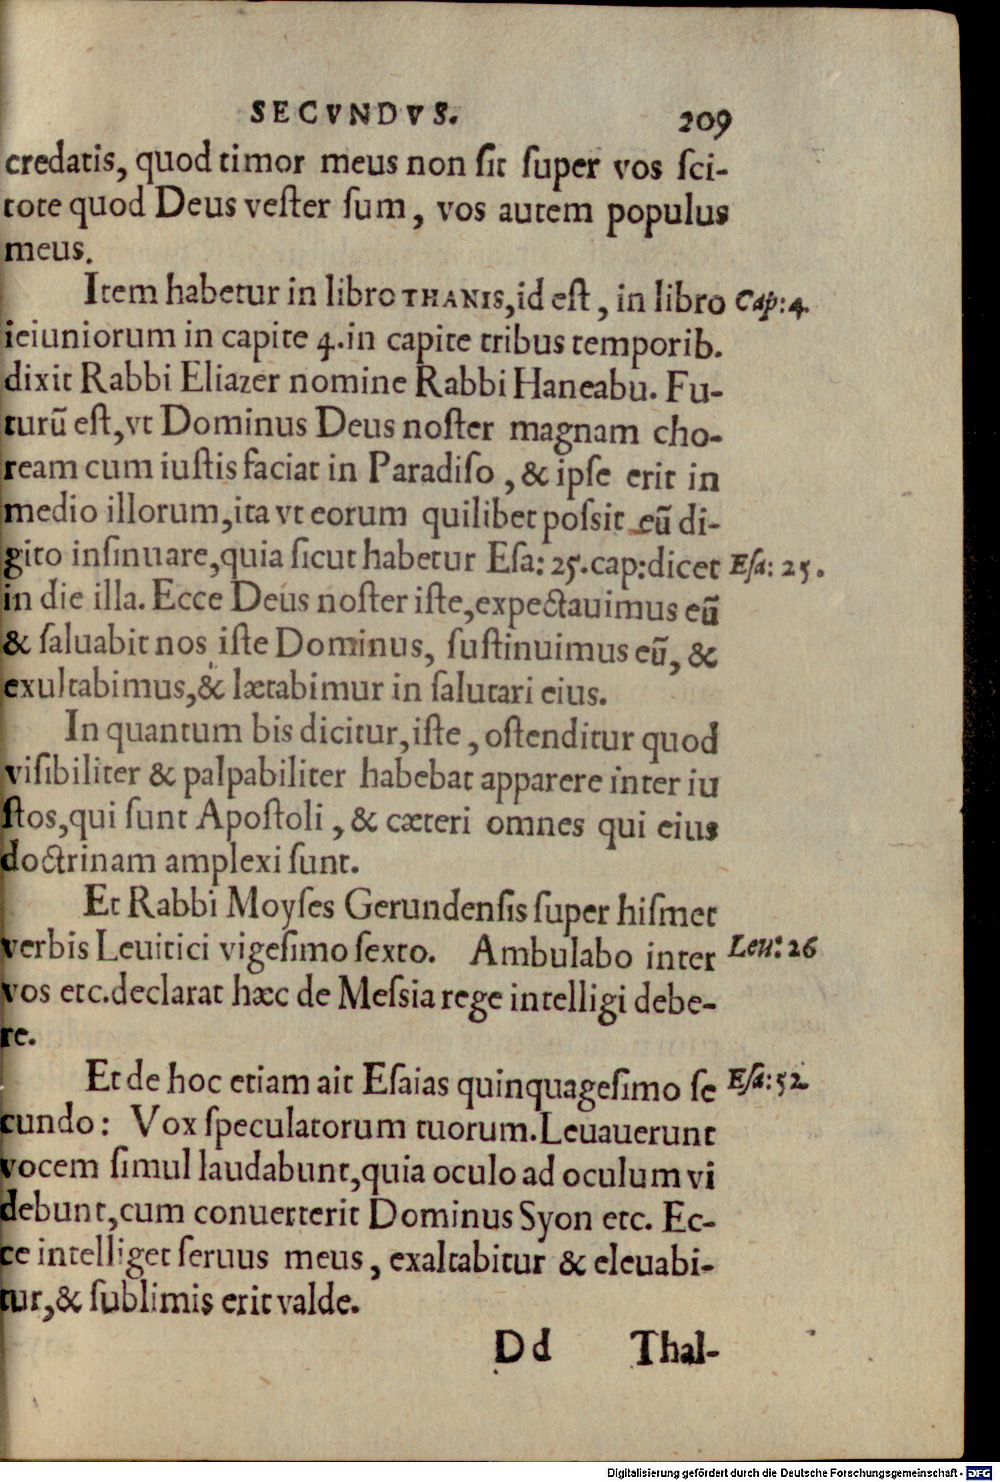 SECVNDVS. 209
credatis, quod timor meus non sit super vos sci-
tote quod Deus vester sum, vos autem populus
meus.
Item habetur in libro THANIS, id est, in libro Cap: 4.
ieiuniorum in capite 4. in capite tribus temporib.
dixit Rabbi Eliazer nomine Rabbi Haneabu. Fu-
turū est, vt Dominus Deus noster magnam cho-
ream cum iustis faciat in Paradiso, & ipse erit in
medio illorum, ita vt eorum quilibet possit eū di-
gito insinuare, quia sicut habetur Esa: 25. cap: dicet Esa: 25.
in die illa. Ecce Deus noster iste, expectauimus eū
& saluabit nos iste Dominus, sustinuimus eū, &
exultabimus, & lætabimur in salutari eius.
In quantum bis dicitur, iste, ostenditur quod
visibiliter & palpabiliter habebat apparere inter iu
stos, qui sunt Apostoli, & cæteri omnes qui eius
doctrinam amplexi sunt.
Et Rabbi Moyses Gerundensis super hismet
verbis Leuitici vigesimo sexto. Ambulabo inter Leu: 26
vos etc. declarat hæc de Messia rege intelligi debe-
re.
Et de hoc etiam ait Esaias quinquagesimo se Esa: 52
cundo: Vox speculatorum tuorum. Leuauerunt
vocem simul laudabunt, quia oculo ad oculum vi
debunt, cum conuerterit Dominus Syon etc. Ec-
ce intelliget seruus meus, exaltabitur & eleuabi-
tur, & sublimis erit valde.
Dd Thal-
Digitalisierung gefördert durch die Deutsche Forschungsgemeinschaft - DFG